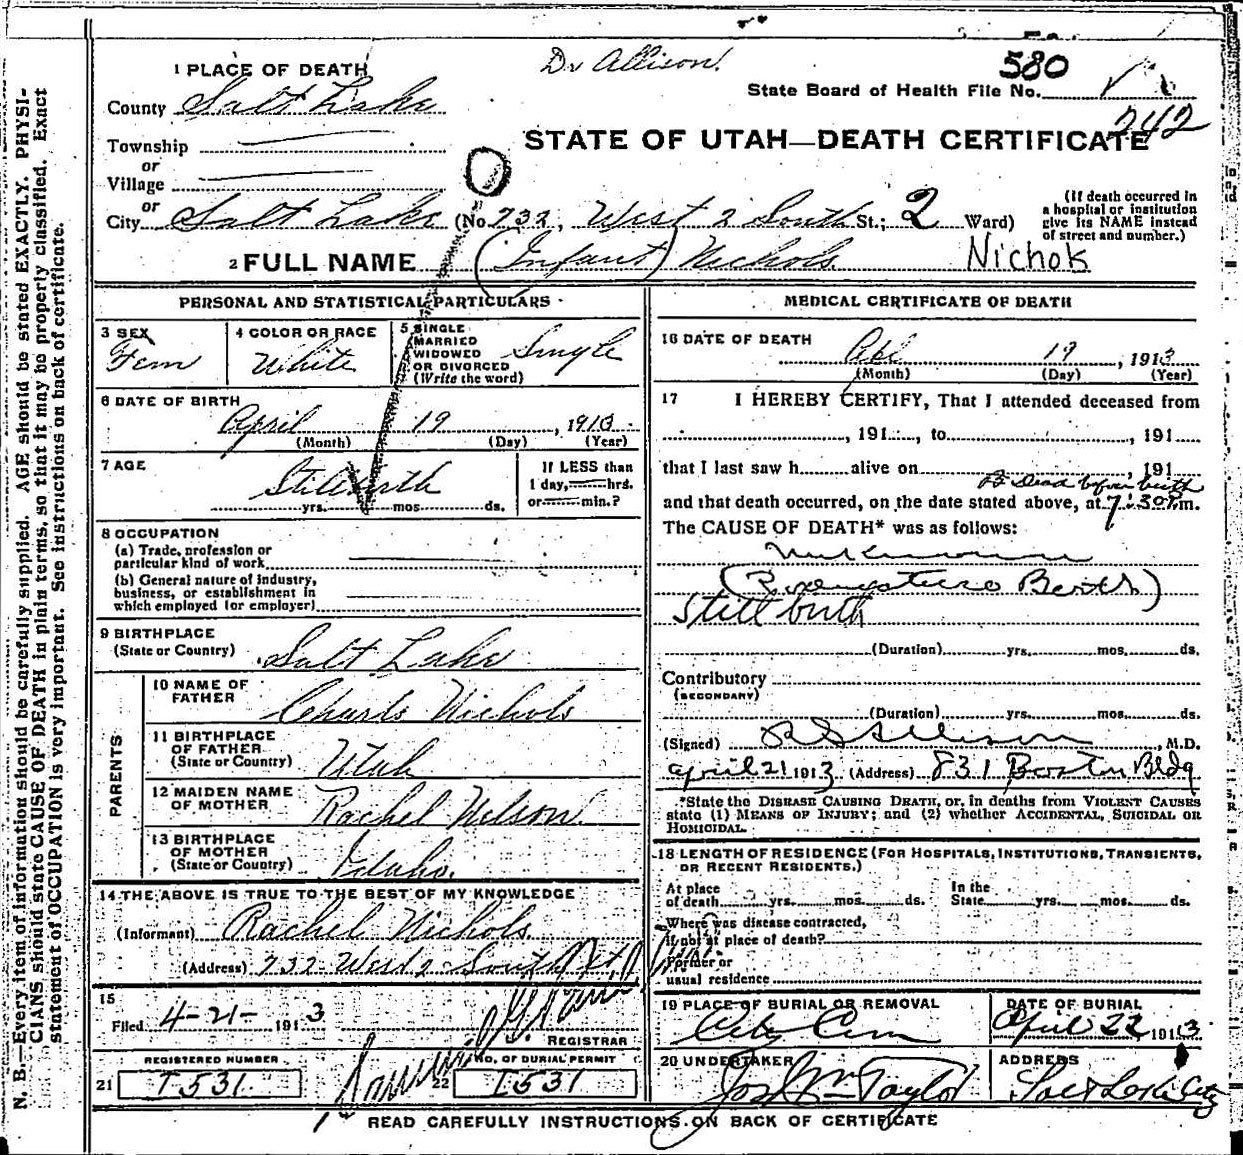 Dr Allison.
580
1 PLACE OF DEATH
State Board of Health File No.
County Salt Lake
242
Township
STATE OF UTAH—DEATH CERTIFICATE
or
Village
or
City Salt Lake (No. 732, West 2 South St.; 2 Ward)
(If death occurred in a hospital or institution give its NAME instead of street and number.)
2 FULL NAME (Infant) Nichols
Nichok
PERSONAL AND STATISTICAL PARTICULARS
3 SEX Fem
4 COLOR OR RACE White
5 SINGLE MARRIED WIDOWED OR DIVORCED (Write the word) Single
6 DATE OF BIRTH
April 19, 1913
(Month) (Day) (Year)
7 AGE
Stillbirth
yrs. mos. ds.
If LESS than 1 day, hrs. or min.?
8 OCCUPATION
(a) Trade, profession or particular kind of work
(b) General nature of industry, business, or establishment in which employed (or employer)
9 BIRTHPLACE
(State or Country) Salt Lake
PARENTS
10 NAME OF FATHER Charls Nichols
11 BIRTHPLACE OF FATHER (State or Country) Utah
12 MAIDEN NAME OF MOTHER Rachel Nelson
13 BIRTHPLACE OF MOTHER (State or Country) Idaho.
14 THE ABOVE IS TRUE TO THE BEST OF MY KNOWLEDGE
(Informant) Rachel Nichols
(Address) 732 West 2 South St.
15
Filed 4-21- 1913
REGISTRAR
REGISTERED NUMBER
NO. OF BURIAL PERMIT
21 I531
22 I531
MEDICAL CERTIFICATE OF DEATH
16 DATE OF DEATH
19, 1913
(Month) (Day) (Year)
17 I HEREBY CERTIFY, That I attended deceased from
, 191 , to , 191
that I last saw h alive on , 191
Dead before birth
and that death occurred, on the date stated above, at 7:30 Pm.
The CAUSE OF DEATH* was as follows:
unknown
Birth)
Still birth
(Duration) yrs. mos. ds.
Contributory
(SECONDARY)
(Duration) yrs. mos. ds.
(Signed) Allison, M.D.
april 21 1913 (Address) 831 Boston Bldg
*State the DISEASE CAUSING DEATH, or, in deaths from VIOLENT CAUSES
state (1) MEANS OF INJURY; and (2) whether ACCIDENTAL, SUICIDAL OR
HOMICIDAL.
18 LENGTH OF RESIDENCE (FOR HOSPITALS, INSTITUTIONS, TRANSIENTS,
OR RECENT RESIDENTS.)
At place of death yrs. mos. ds. In the State yrs. mos. ds.
Where was disease contracted,
if not at place of death?
Former or
usual residence
19 PLACE OF BURIAL OR REMOVAL
City Cem
DATE OF BURIAL
April 22 1913
20 UNDERTAKER
Jos Wm Taylor
ADDRESS
Salt Lake City
READ CAREFULLY INSTRUCTIONS ON BACK OF CERTIFICATE
N. B.—Every item of information should be carefully supplied. AGE should be stated EXACTLY. PHYSI-
CIANS should state CAUSE OF DEATH in plain terms, so that it may be properly classified. Exact
statement of OCCUPATION is very important. See instructions on back of certificate.